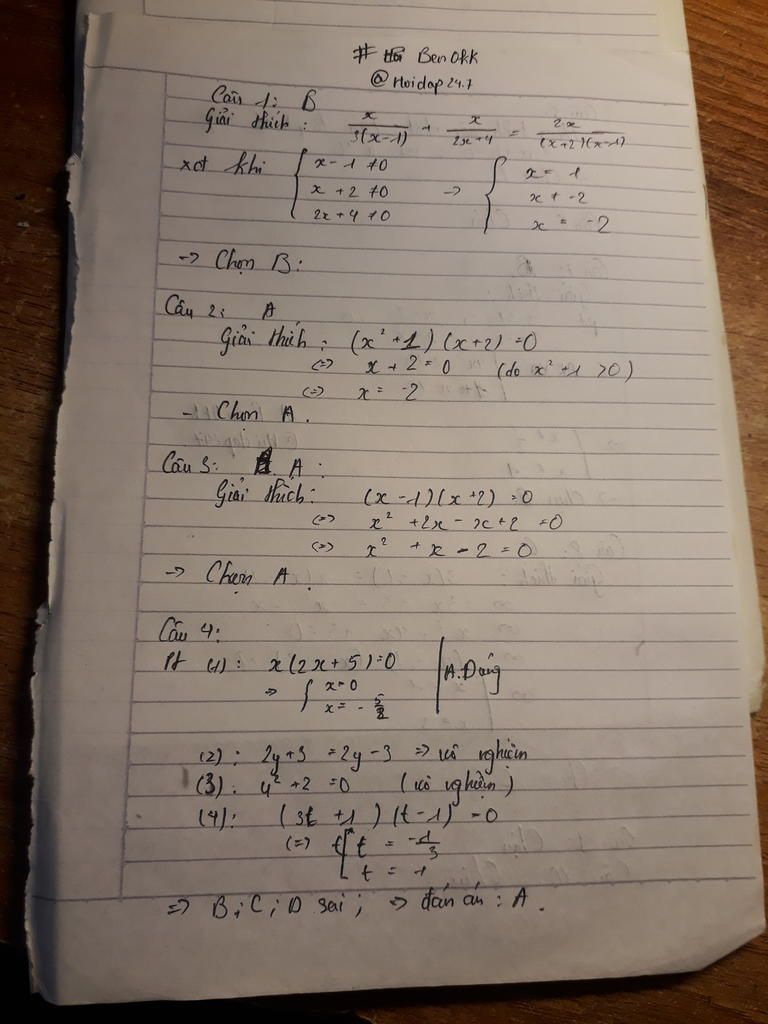 # Ben Okk
@Hoidap24.7
Câu 1: B
Giải thích: x/3(x-1) + x/2x+4 = 2x/(x+2)(x-1)
xét khi { x-1 ≠0 → { x = 1
x + 2 ≠0 x ≠ -2
2x + 4 ≠0 x = -2
→ Chọn B:
Câu 2: A
Giải thích: (x² + 1) (x+2) =0
(=) x + 2 = 0 (do x² + 1 >0)
(=) x = -2
- Chọn A.
Câu 3: A:
Giải thích: (x -1)(x+2) =0
(=) x² +2x - x+2 =0
(=) x² + x - 2 = 0
→ Chọn A.
Câu 4:
Pt (1): x(2x+5)=0 | A. Đúng
=> { x=0
x = - 5/2
(2): 2y+3 = 2y-3 => vô nghiệm
(3): u² +2 =0 (vô nghiệm)
(4): (3t +1) (t -1) =0
(=) [ t = -1/3
t = 1
=> B; C; D sai; => đán án: A.